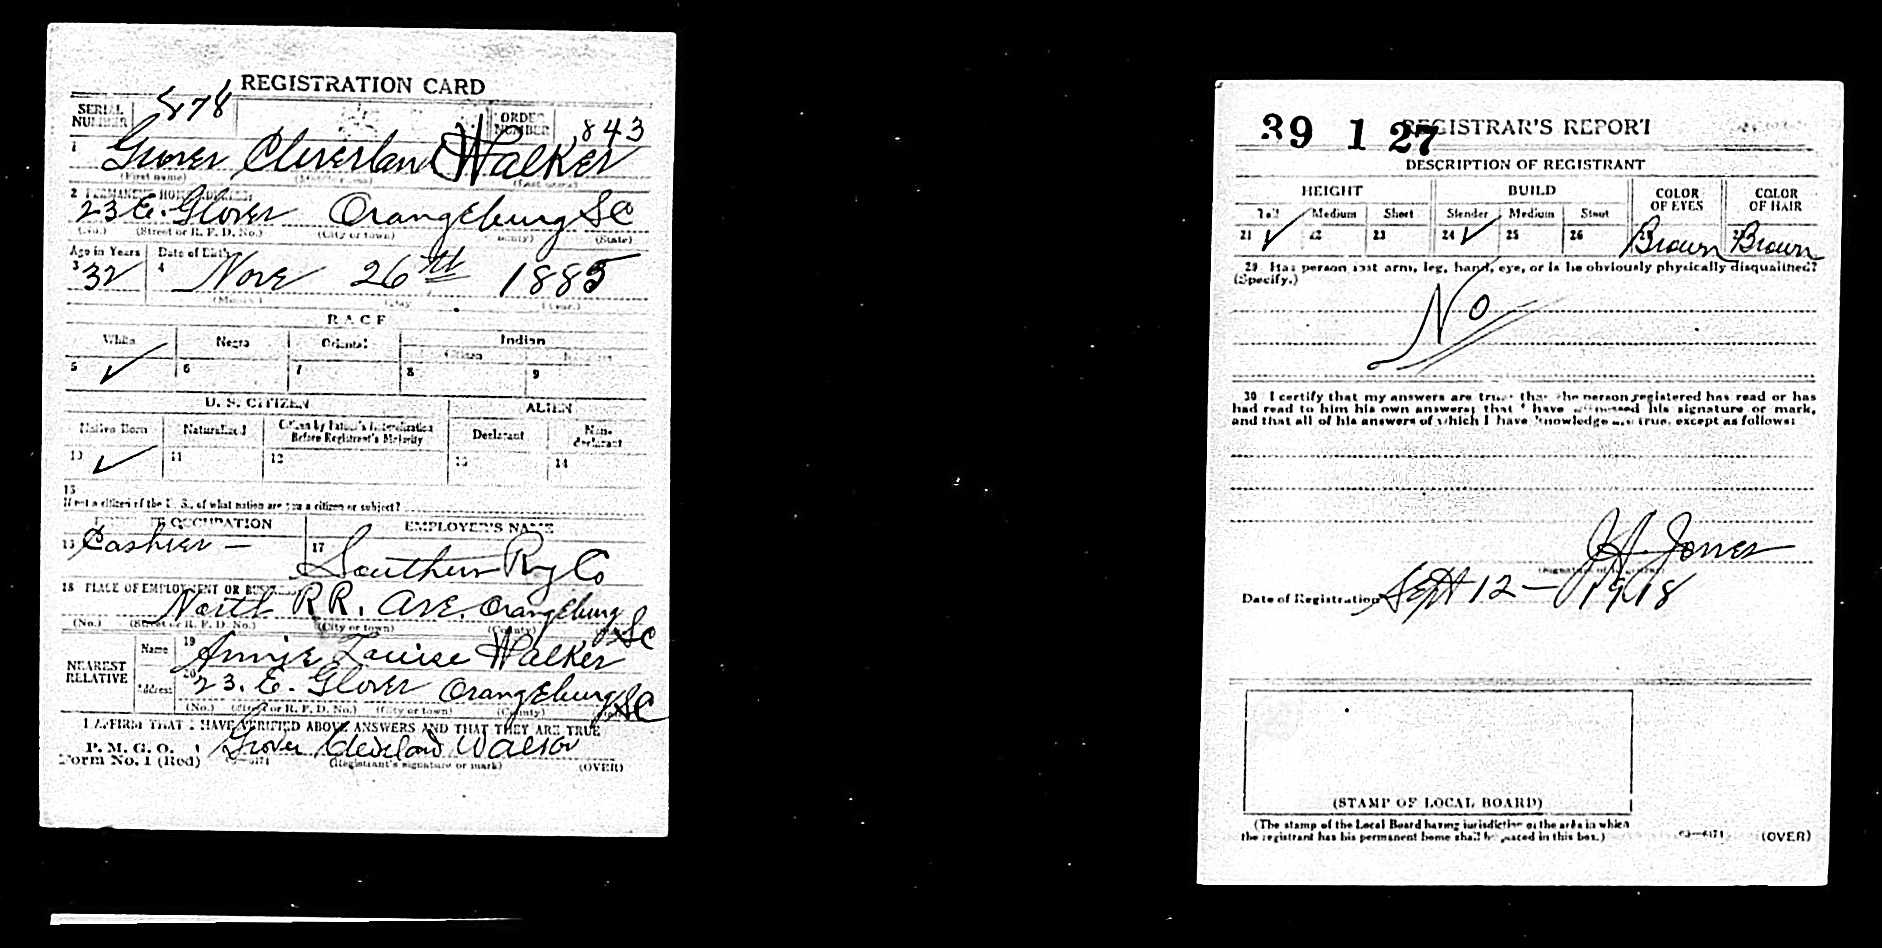 REGISTRATION CARD
SERIAL NUMBER 878 ORDER NUMBER 843
1 Grover Cleverland Walker
(First name) (Last name)
2 PERMANENT HOME ADDRESS:
23 E. Glover Orangeburg SC
(No.) (Street or R. F. D. No.) (City or town) (County) (State)
Age in Years Date of Birth
3 32 4 Nove 26th 1885
(Month) (Day) (Year)
RACE
White Negro Oriental Indian
Citizen
5 ✓ 6 7 8 9
U. S. CITIZEN ALIEN
Native Born Naturalized Citizen by Father's Naturalization Before Registrant's Majority Declarant Non-declarant
10 ✓ 11 12 13 14
15
If not a citizen of the U. S., of what nation are you a citizen or subject?
OCCUPATION EMPLOYER'S NAME
Cashier — 17 Southern Ry Co
18 PLACE OF EMPLOYMENT OR BUSINESS
North RR. Ave. Orangeburg SC
(No.) (Street or R. F. D. No.) (City or town) (County)
NEAREST RELATIVE Name 19 Annie Louise Walker
Address 20 23. E. Glover Orangeburg SC
(No.) (Street or R. F. D. No.) (City or town) (County)
I AFFIRM THAT I HAVE VERIFIED ABOVE ANSWERS AND THAT THEY ARE TRUE
P. M. G. O. Grover Cleveland Walker
Form No. 1 (Red) 03—6171 (Registrant's signature or mark) (OVER)
39 1 27 REGISTRAR'S REPORT
DESCRIPTION OF REGISTRANT
HEIGHT BUILD COLOR OF EYES COLOR OF HAIR
Tall Medium Short Slender Medium Stout
21 ✓ 22 23 24 ✓ 25 26 Brown Brown
29 Has person lost arm, leg, hand, eye, or is he obviously physically disqualified?
(Specify.)
No
30 I certify that my answers are true; that the person registered has read or has
had read to him his own answers; that I have witnessed his signature or mark,
and that all of his answers of which I have knowledge are true, except as follows:
Jones
(Signature of Registrar)
Date of Registration Sept 12 — 1918
(STAMP OF LOCAL BOARD)
(The stamp of the Local Board having jurisdiction of the area in which
the registrant has his permanent home shall be placed in this box.) 03—6171 (OVER)